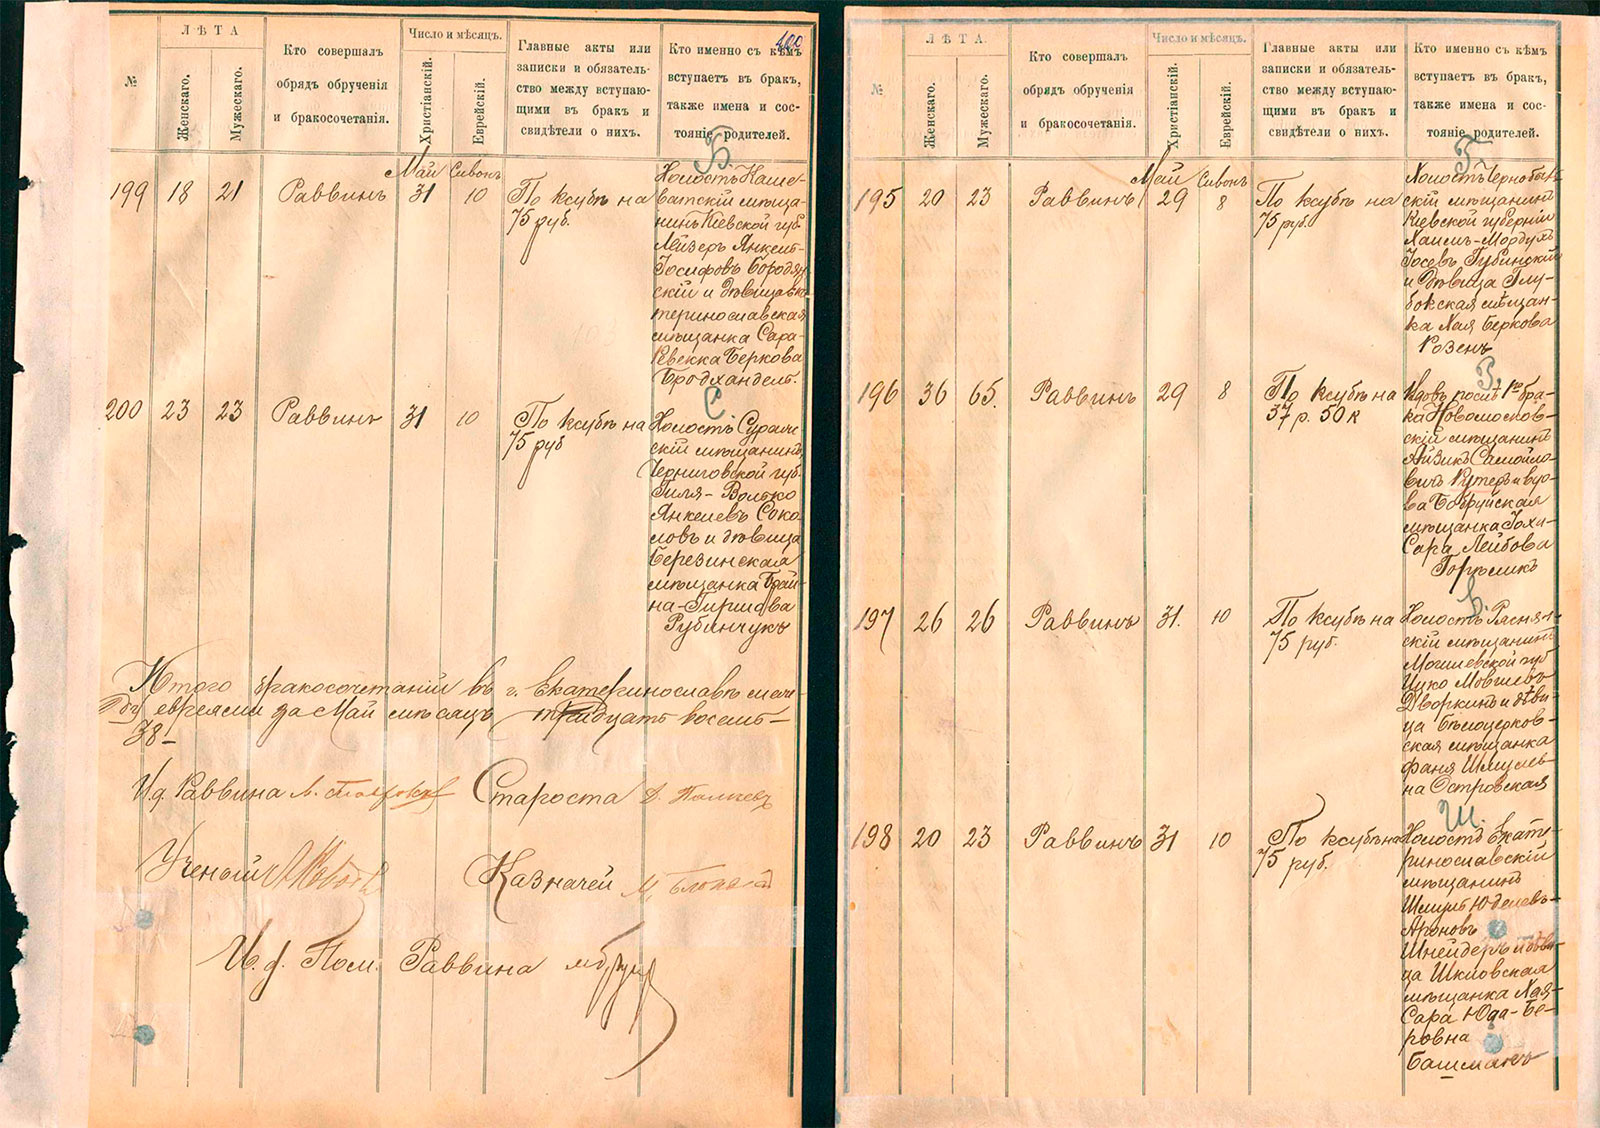 200
ЛѢТА
Число и мѣсяцъ.
№
Женскаго.
Мужескаго.
Кто совершалъ
обрядъ обрученія
и бракосочетанія.
Христіанскій.
Еврейскій.
Главные акты или
записки и обязатель-
ство между вступаю-
щими въ бракъ и
свидѣтели о нихъ.
Кто именно съ кѣмъ
вступаетъ въ бракъ,
также имена и сос-
тояніе родителей.
Б.
Май Сивонъ
199 18 21 Раввинъ 31 10
По ксубѣ на
75 руб.
Холостъ Каше-
ватскій мѣща-
нинъ Кіевской губ.
Лейзеръ Янкель-
Іосифовъ Бородян
скій и дѣвица Ека
теринославская
мѣщанка Сара-
Ревекка Беркова
Бродхандель.
С.
200 23 23 Раввинъ 31 10
По ксубѣ на
75 руб
Холостъ Суражс
скій мѣщанинъ
Черниговской губ.
Гиля-Волько
Янкелевъ Соко-
ловъ и дѣвица
Березинская
мѣщанка Брай-
на-Гиршова
Рубинчикъ
Итого бракосочетаній въ г. Екатеринославѣ между
евреями за Май мѣсяцъ тридцать восемь-
38-
И.д. Раввина
Староста
Ученый
Казначей
И.д. Пом. Раввина
ЛѢТА.
Число и мѣсяцъ.
№
Женскаго.
Мужескаго.
Кто совершалъ
обрядъ обрученія
и бракосочетанія.
Христіанскій.
Еврейскій.
Главные акты или
записки и обязатель-
ство между вступаю-
щими въ бракъ и
свидѣтели о нихъ.
Кто именно съ кѣмъ
вступаетъ въ бракъ,
также имена и сос-
тояніе родителей.
Г.
Май Сивонъ
195 20 23 Раввинъ 29 8
По ксубѣ на
75 руб
Холостъ Чернобыль
скій мѣщанинъ
Кіевской губерніи
Хаимъ-Мордухъ
Іосевъ Губинскій
и дѣвица Глу-
бокская мѣщан-
ка Хая Беркова
Розенъ
Р.
196 36 65. Раввинъ 29 8
По ксубѣ на
37 р. 50 к
Вдовъ послѣ 1го бра-
ка Новомосков-
скій мѣщанинъ
Айзикъ Самойло-
вичъ Рутеръ и вдо-
ва Бобруйская
мѣщанка Іохи-
Сара Лейбова
Горѣликъ
197 26 26 Раввинъ 31. 10
По ксубѣ на
75 руб.
Холостъ Ряснян-
скій мѣщанинъ
Могилевской губ
Ицко Мовшевъ
Дворкинъ и дѣви-
ца Бѣлоцерков-
ская мѣщанка
Фаня Шмулев-
на Островская
Ш.
198 20 23 Раввинъ 31 10
По ксубѣ на
75 руб.
Холостъ Екате-
ринославскій
мѣщанинъ
Шмуль Юделевъ-
Ароновъ
Шнейдеръ и дѣви-
ца Шкловская
мѣщанка Хая-
Сара Юда-Бе-
ровна
Башманъ